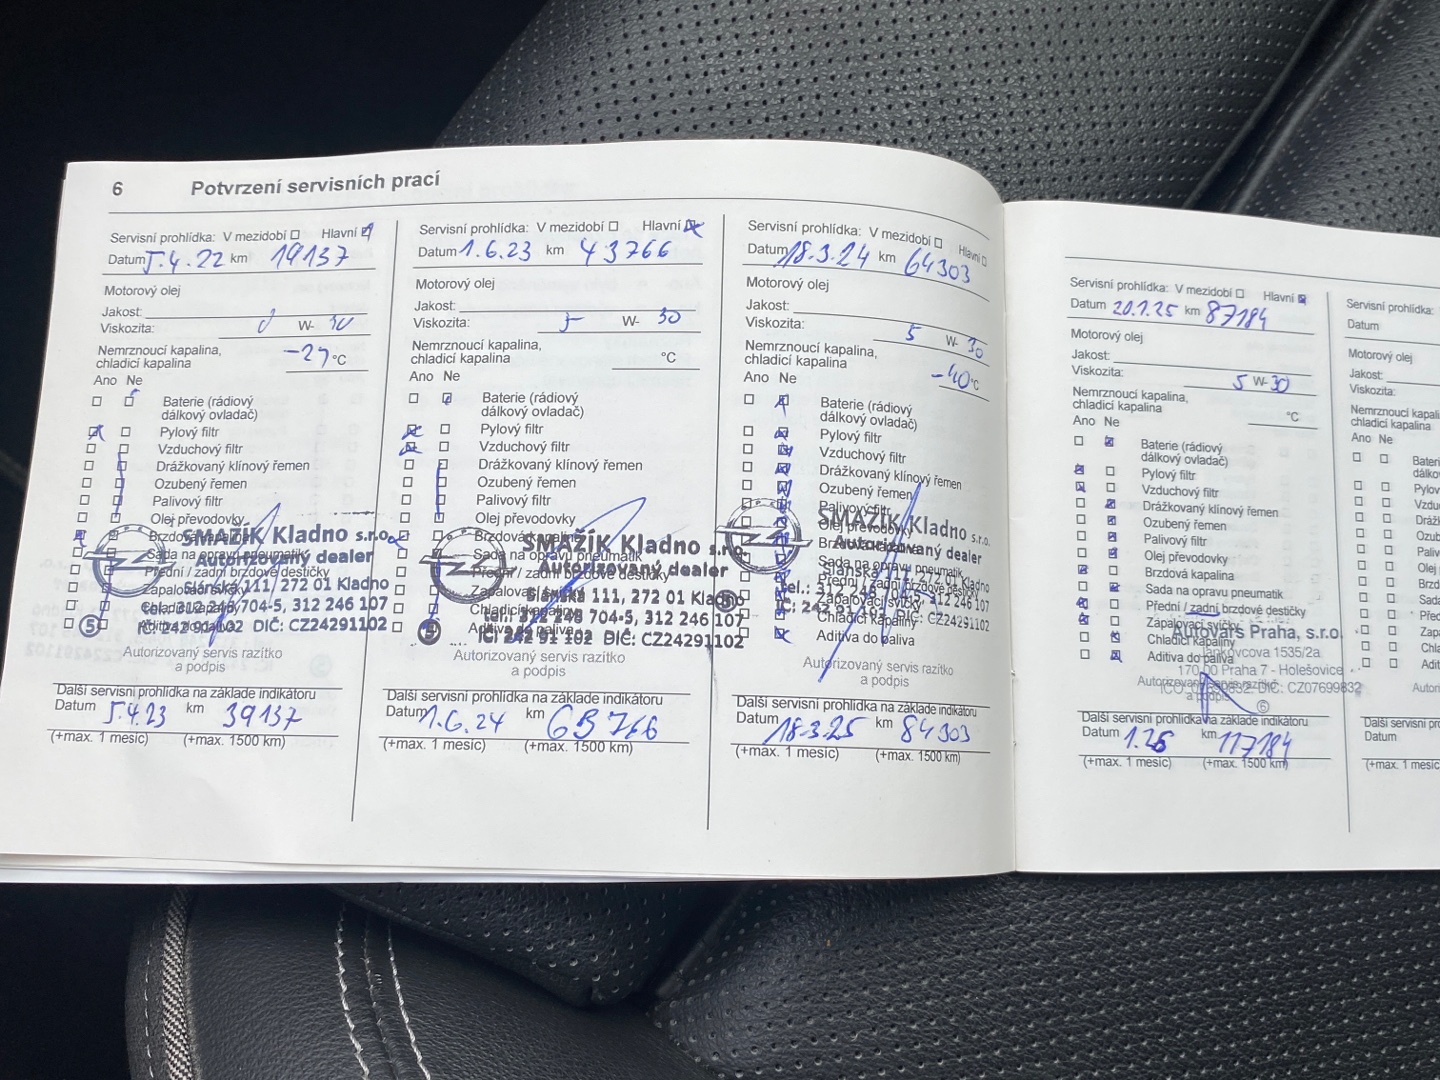 6 Potvrzení servisních prací
Servisní prohlídka: V mezidobí Hlavní
Datum 5.4.22 km 19137
Motorový olej
Jakost:
Viskozita: 0 W-
Nemrznoucí kapalina,
chladicí kapalina °C
Ano Ne
Baterie (rádiový
dálkový ovladač)
Pylový filtr
Vzduchový filtr
Drážkovaný klínový řemen
Ozubený řemen
Palivový filtr
Olej převodovky
Brzdová kapalina
Sada na opravu pneumatik
Přední / zadní brzdové destičky
Zapalovací svíčky
Chladicí kapaliny
Aditiva do paliva
SMAŽÍK Kladno s.r.o.
Autorizovaný dealer
Slánská 111, 272 01 Kladno
tel.: 312 246 704-5, 312 246 107
IČ: 242 91 102 DIČ: CZ24291102
5
Autorizovaný servis razítko
a podpis
Další servisní prohlídka na základe indikátoru
Datum 5.4.23 km 39137
(+max. 1 mesíc) (+max. 1500 km)
Servisní prohlídka: V mezidobí Hlavní
Datum 1.6.23 km 43766
Motorový olej
Jakost:
Viskozita: 5 W- 30
Nemrznoucí kapalina,
chladicí kapalina °C
Ano Ne
Baterie (rádiový
dálkový ovladač)
Pylový filtr
Vzduchový filtr
Drážkovaný klínový řemen
Ozubený řemen
Palivový filtr
Olej převodovky
Brzdová kapalina
Sada na opravu pneumatik
Přední / zadní brzdové destičky
Zapalovací svíčky
Chladicí kapaliny
Aditiva do paliva
SMAŽÍK Kladno s.r.o.
Autorizovaný dealer
Slánská 111, 272 01 Kladno
tel.: 312 246 704-5, 312 246 107
IČ: 242 91 102 DIČ: CZ24291102
Autorizovaný servis razítko
a podpis
Další servisní prohlídka na základe indikátoru
Datum 1.6.24 km 63766
(+max. 1 mesíc) (+max. 1500 km)
Servisní prohlídka: V mezidobí Hlavní
Datum 18.3.24 km 64303
Motorový olej
Jakost:
Viskozita: 5 W- 30
Nemrznoucí kapalina,
chladicí kapalina -40 °C
Ano Ne
Baterie (rádiový
dálkový ovladač)
Pylový filtr
Vzduchový filtr
Drážkovaný klínový řemen
Ozubený řemen
Palivový filtr
Olej převodovky
Brzdová kapalina
Sada na opravu pneumatik
Přední / zadní brzdové destičky
Zapalovací svíčky
Chladicí kapaliny
Aditiva do paliva
SMAŽÍK Kladno s.r.o.
Autorizovaný dealer
Slánská 111, 272 01 Kladno
tel.: 312 246 704-5, 312 246 107
IČ: 242 91 102 DIČ: CZ24291102
5
Autorizovaný servis razítko
a podpis
Další servisní prohlídka na základe indikátoru
Datum 18.3.25 km 84303
(+max. 1 mesíc) (+max. 1500 km)
Servisní prohlídka: V mezidobí Hlavní
Datum 20.1.25 km 87184
Motorový olej
Jakost:
Viskozita: 5 W- 30
Nemrznoucí kapalina,
chladicí kapalina °C
Ano Ne
Baterie (rádiový
dálkový ovladač)
Pylový filtr
Vzduchový filtr
Drážkovaný klínový řemen
Ozubený řemen
Palivový filtr
Olej převodovky
Brzdová kapalina
Sada na opravu pneumatik
Přední / zadní brzdové destičky
Zápalovací svíčky
Chladicí kapaliny
Aditiva do paliva
Autovars Praha, s.r.o.
Jankovcova 1535/2a
170 00 Praha 7 - Holešovice
DIČ: CZ07699832
6
Autorizovaný servis razítko
a podpis
Další servisní prohlídka na základe indikátoru
Datum 1.26 km 117184
(+max. 1 mesíc) (+max. 1500 km)
Servisní prohlídka:
Datum
Motorový olej
Jakost:
Viskozita:
Nemrznoucí kapalina,
chladicí kapalina
Ano Ne
Další servisní
Datum
(+max. 1 mesíc